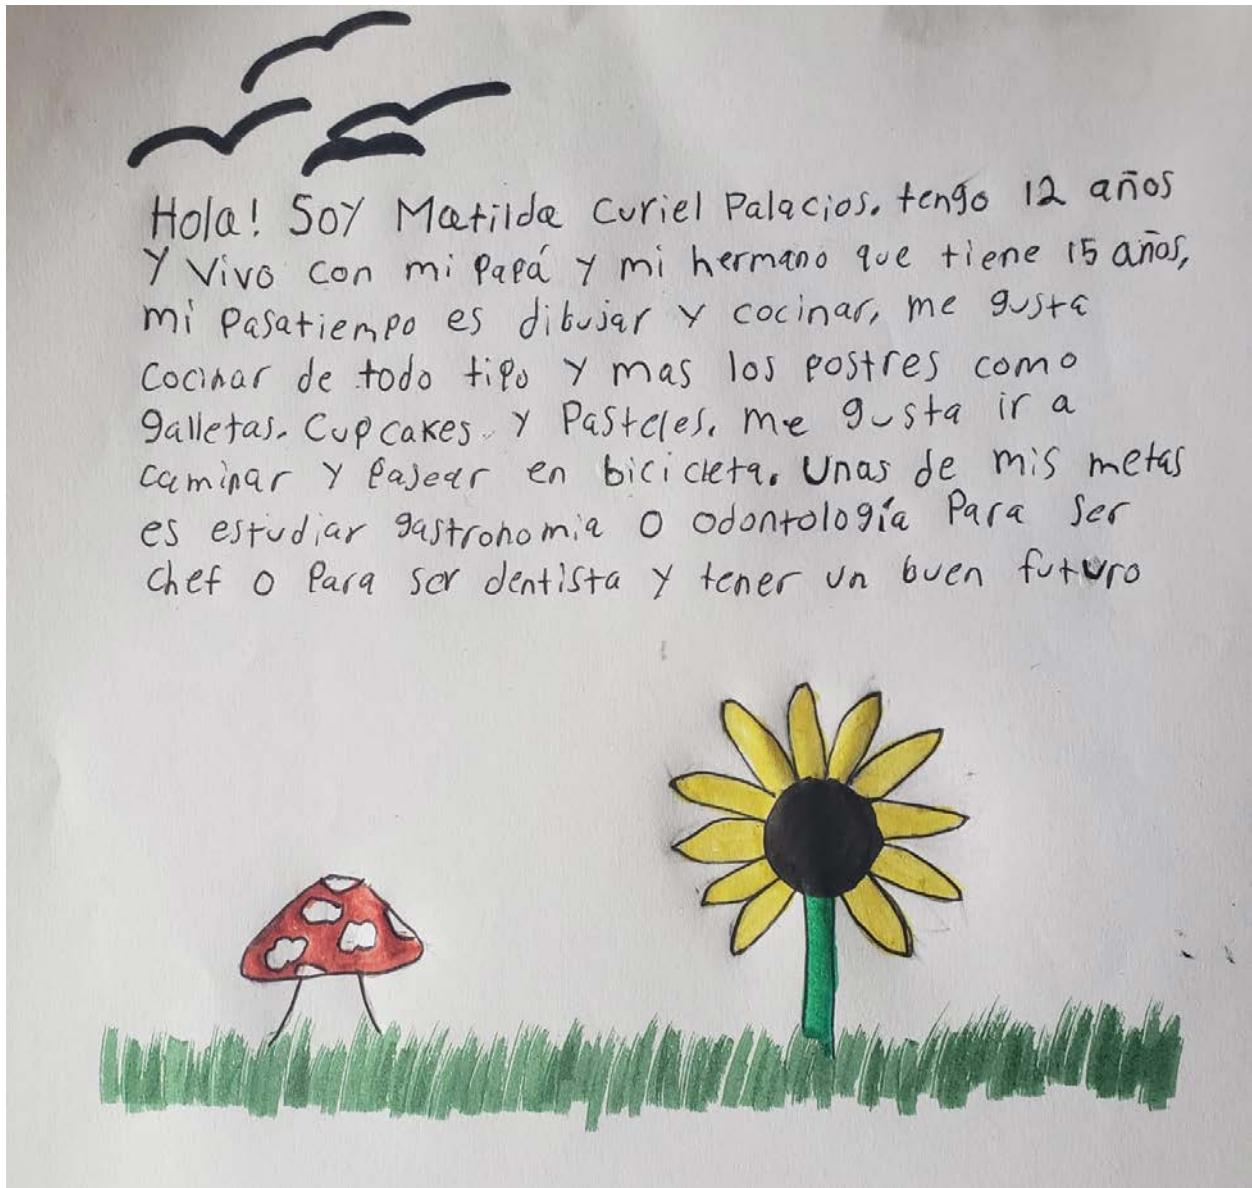 Hola! Soy Matilda Curiel Palacios. tengo 12 años
Y Vivo con mi Papá y mi hermano que tiene 15 años,
mi Pasatiempo es dibujar y cocinar, me gusta
cocinar de todo tipo y mas los postres como
galletas. Cupcakes y Pasteles. me gusta ir a
caminar y Pasear en bicicleta. Unas de mis metas
es estudiar gastronomia o odontología Para ser
chef o Para ser dentista y tener un buen futuro